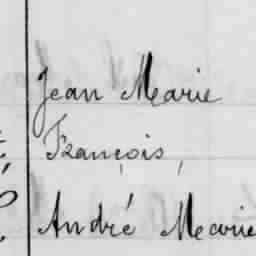 Jean Marie
François,
André Marie